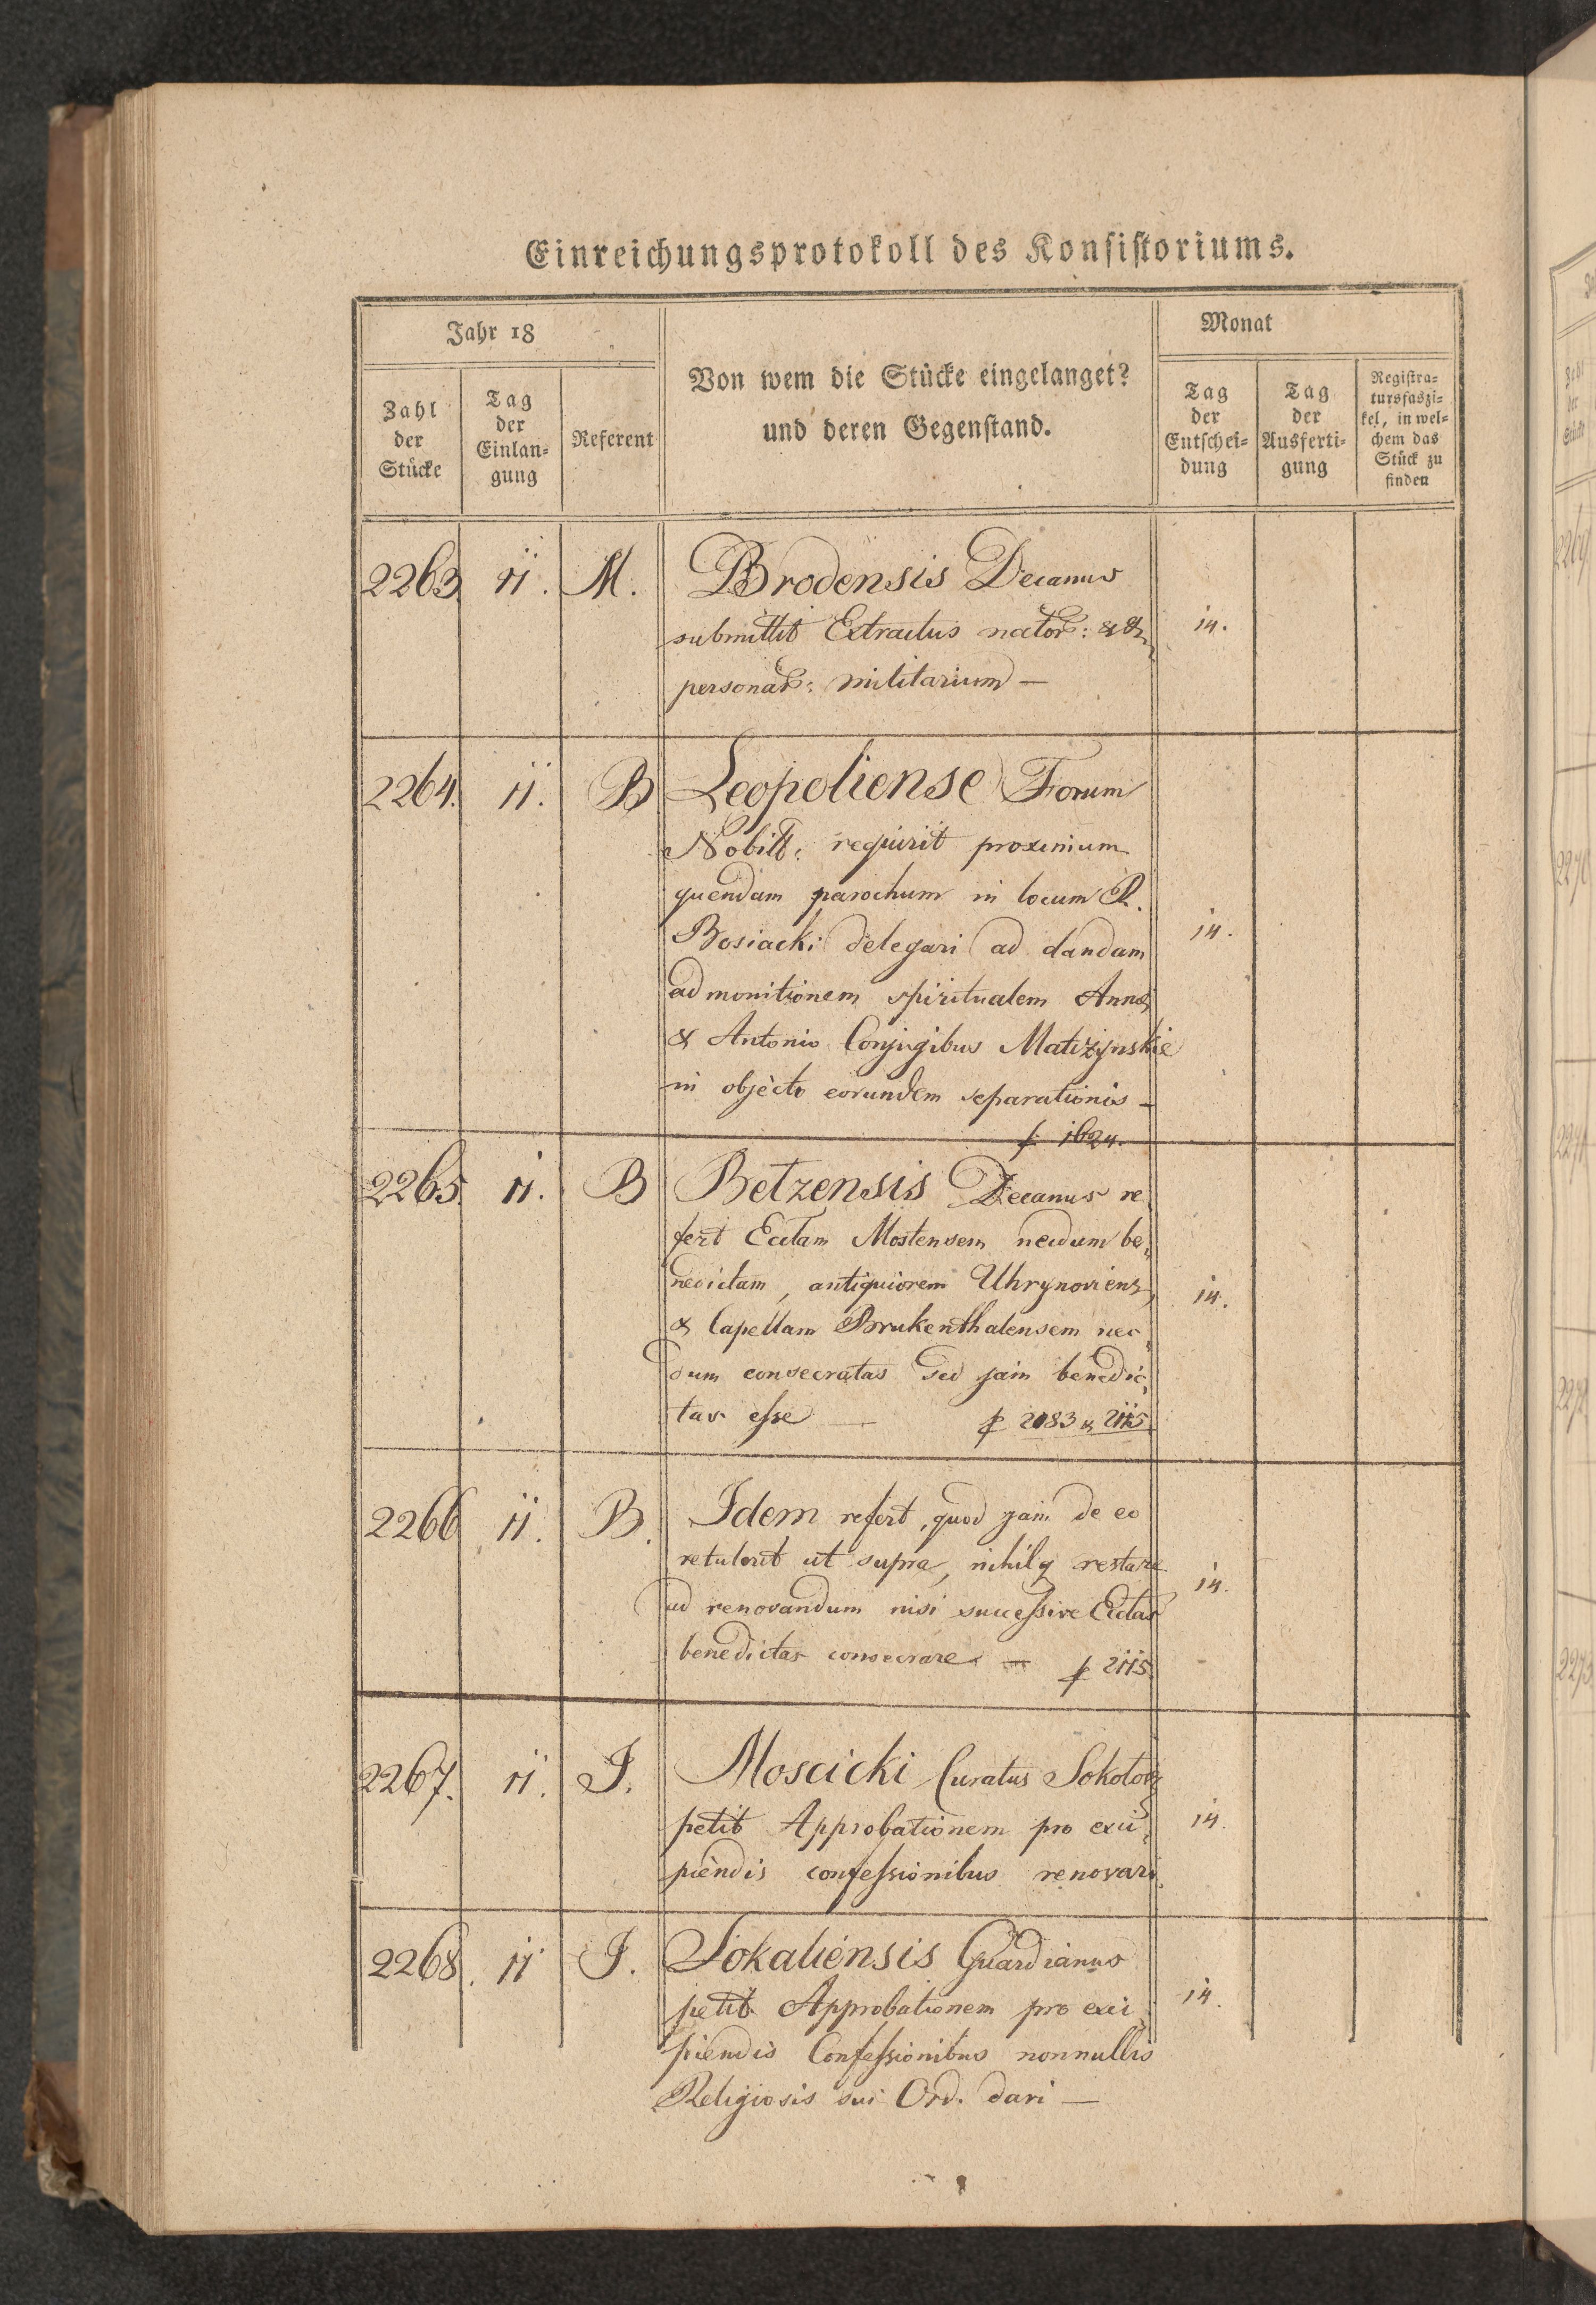 Einreichungsprotokoll des Konsistoriums.
Jahr 18
Monat
Zahl der Stücke
Tag der Einlan-gung
Referent
Von wem die Stücke eingelanget?
und deren Gegenstand.
Tag der Entschei-dung
Tag der Ausferti-gung
Registra-tursfaszi-kel, in wel-chem das Stück zu finden
2263. 11. M. Brodensis Decanus
submittit Extractus nator: &&
14.
personar: militarium —
2264. 11. B Leopoliense Forum
Nobill: requirit proximum
quendam parochum in locum R.
Bosiacki delegari ad dandam
14.
admonitionem spiritualem Annæ
& Antonio Conjugibus Matczynskie
in objecto eorundem separationis —
f 1624.
2265. 11. B Betzensis Decanus re
fert Ecclam Mostensem necdum be,
nedictam, antiquiorem Uhrynoviens,
14.
& Capellam Brukenthalensem nec,
dum consecratas sed jam benedic,
tas esse — f 2083 & 2115
2266 11. B. Idem refert, quod jam de eo
retulerit ut supra, nihilq restare
14.
ad renovandum nisi successive Ecclas
benedictas consecrare — f 2115
2267. 11. J. Moscicki Curatus Sokolov
petit Approbationem pro exci,
14.
piendis confessionibus renovari.
2268. 11 J. Sokaliensis Guardianus
petit Approbationem pro exci,
14.
piendis Confessionibus nonnullis
Religiosis sui Ord. dari —